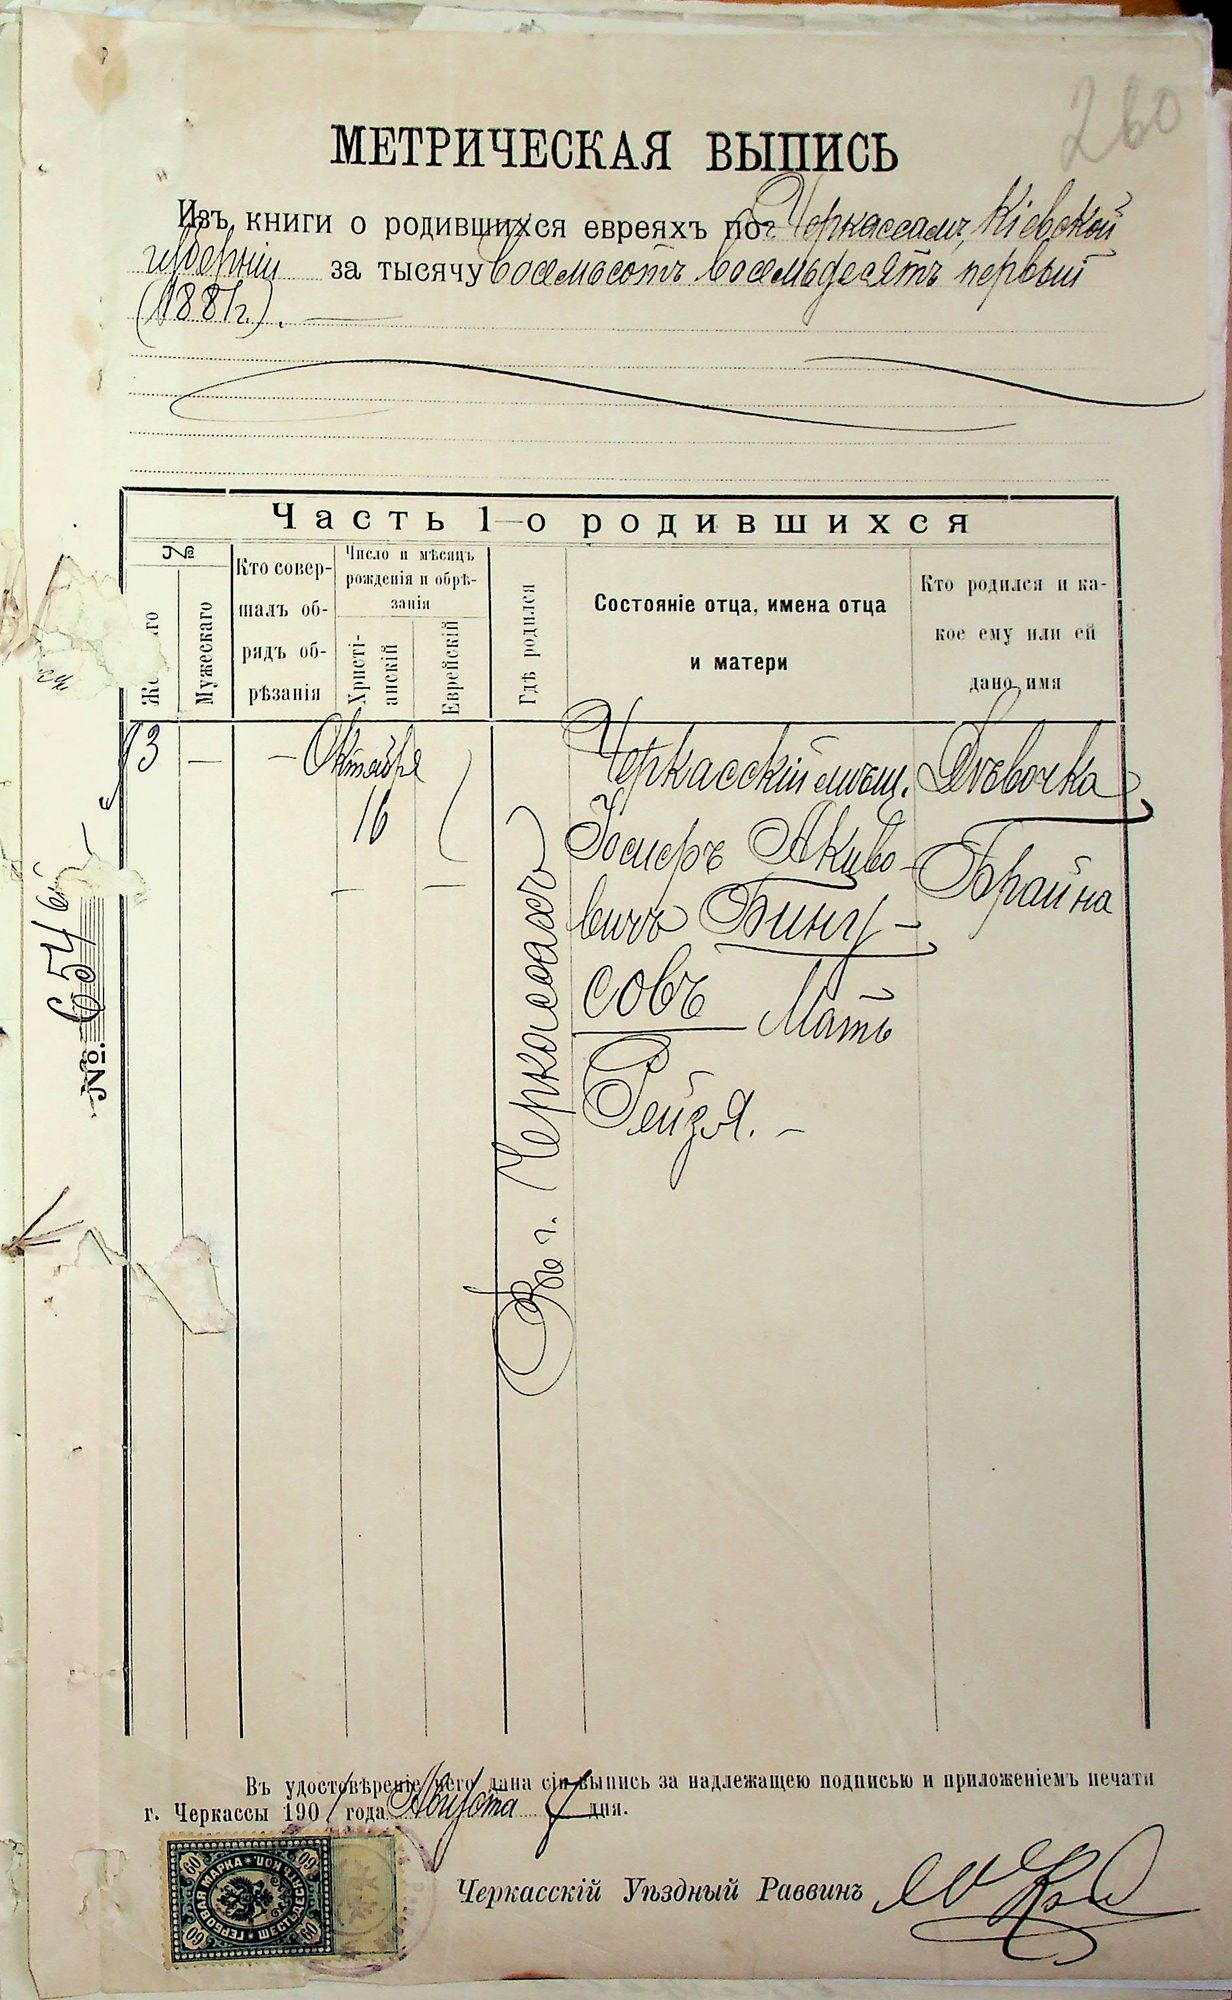 260
МЕТРИЧЕСКАЯ ВЫПИСЬ
Изъ книги о родившихся евреяхъ по г. Черкассамъ, Кіевской
губерніи за тысячу восемьсотъ восемьдесятъ первый
(1881г.).
Часть 1-о родившихся
№
Же го
Мужескаго
Кто совер-
шалъ об-
рядъ об-
рѣзанія
Число и мѣсяцъ
рожденія и обрѣ-
занія
Христі-
анскій
Еврейскій
Гдѣ родился
Состояніе отца, имена отца
и матери
Кто родился и ка-
кое ему или ей
дано имя
93
—
— Октября
16
— —
Въ г. Черкассахъ
Черкасскій мѣщ.
Іосифъ Акиво-
вичъ Бину-
совъ Мать
Рейзя. —
Дѣвочка
Брайна
№. 654
Въ удостовѣреніе чего дана сія выпись за надлежащею подписью и приложеніемъ печати
г. Черкассы 1901 года Августа 7 дня.
Черкасскій Уѣздный Раввинъ
ГЕРБОВАЯ МАРКА
ШЕСТЬДЕСЯТЪ КОП.
60 60 60 60